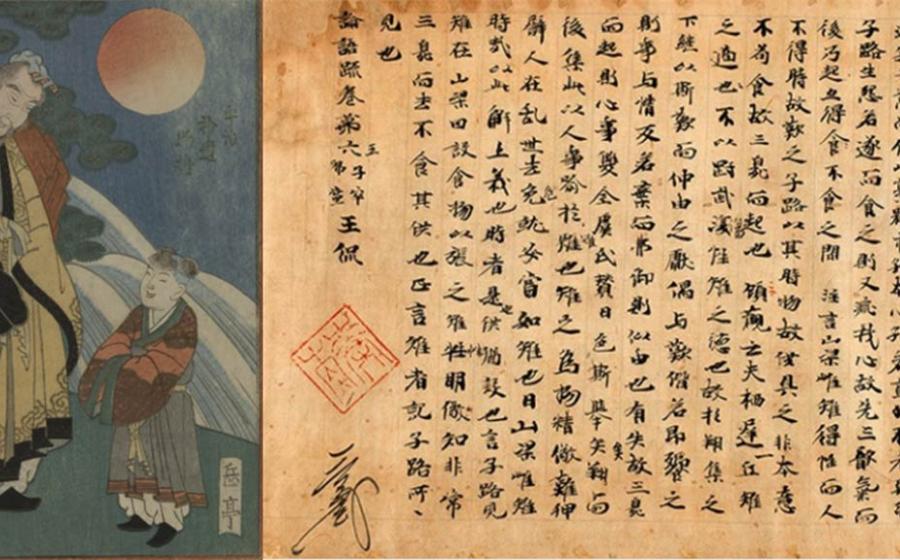 子路生怨若遂而食之則又乖我心故先三歎氣而
後乃起亦得食不食之間 注言山梁雌雉得性而人
不得時故歎之子路以其時物故供具之非本意
不苟食故三臭而起也 顧歡云夫栖遲丘雉
之適也不以剛武傷性雉之德也故於翔集之
下継以斯歎而仲由之獻偶与歎偕若即饗之
則事与情反若棄而弗御則似由也有失故三臭
而起則心事雙全虞氏贊曰色斯舉矣翔而
後集此以人事喻於雉也雉之為物精儆難狎
譬人在乱世去危就安當如雉也曰山梁雌雉
時哉以此解上義也時者是供猶設也言子路見
雉在山梁因設食物以張之雉性明儆知非常
三臭而去不食其供也正言雉者記子路所
見也
論語疏卷第六 王侃
岳亭